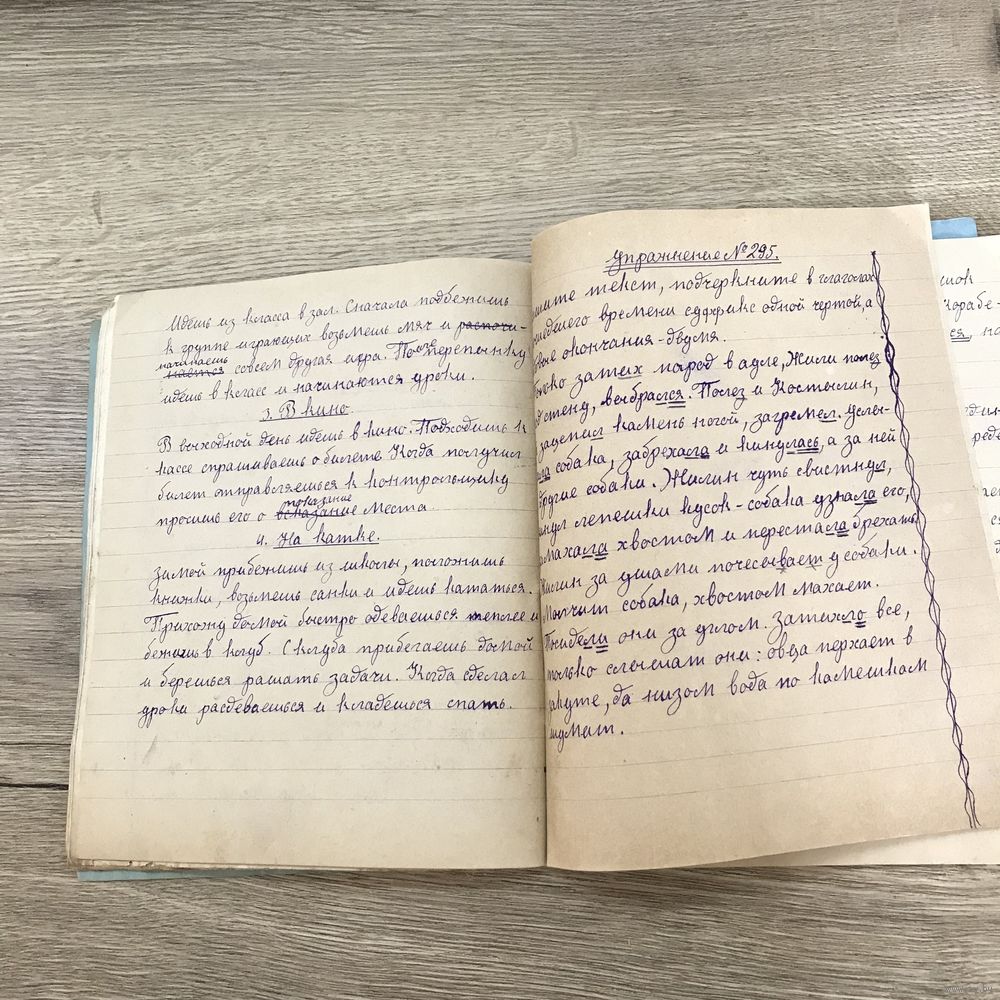 Идешь из класса в зал. Сначала подбежишь
к группе играющих возьмешь мяч и распочи-
начинаешь
нается совсем другая игра. После перепонку
идешь в класс и начинаются уроки.
3. В кино.
В выходной день идешь в кино. Подходишь к
кассе спрашиваешь о билете. Когда получил
билет отправляешься к контрольщику
показание
просишь его о места.
4. На катке.
Зимой прибежишь из школы, положишь
книжки, возьмешь санки и идешь кататься.
Прихожу домой быстро одеваешься теплее и
бежишь в клуб. С клуба прибегаешь домой
и берешься рашать задачи. Когда сделал
уроки расдеваешься и кладешься спать.
Упражнение № 295.
шите текст, подчеркните в глаголах
шедшего времени суффикс одной чертой, а
вые окончания - двумя.
лько затих народ в ауле, Жили полез
стену, выбрался. Полез и Костылин,
зацепил камень ногой, загремел. Услы-
ла собака, забрехала и кинулась, а за ней
другие собаки. Жилин чуть свистнул,
инул лепешки кусок - собака узнала его,
махала хвостом и перестала брехать.
Жилин за ушами почесывает у собаки.
Молчит собака, хвостом махает.
Посидели они за углом. Затихло все,
только слышат они: овца перхает в
акуте, да низом вода по камешкам
шумит.
шок
корабе-
ся, но